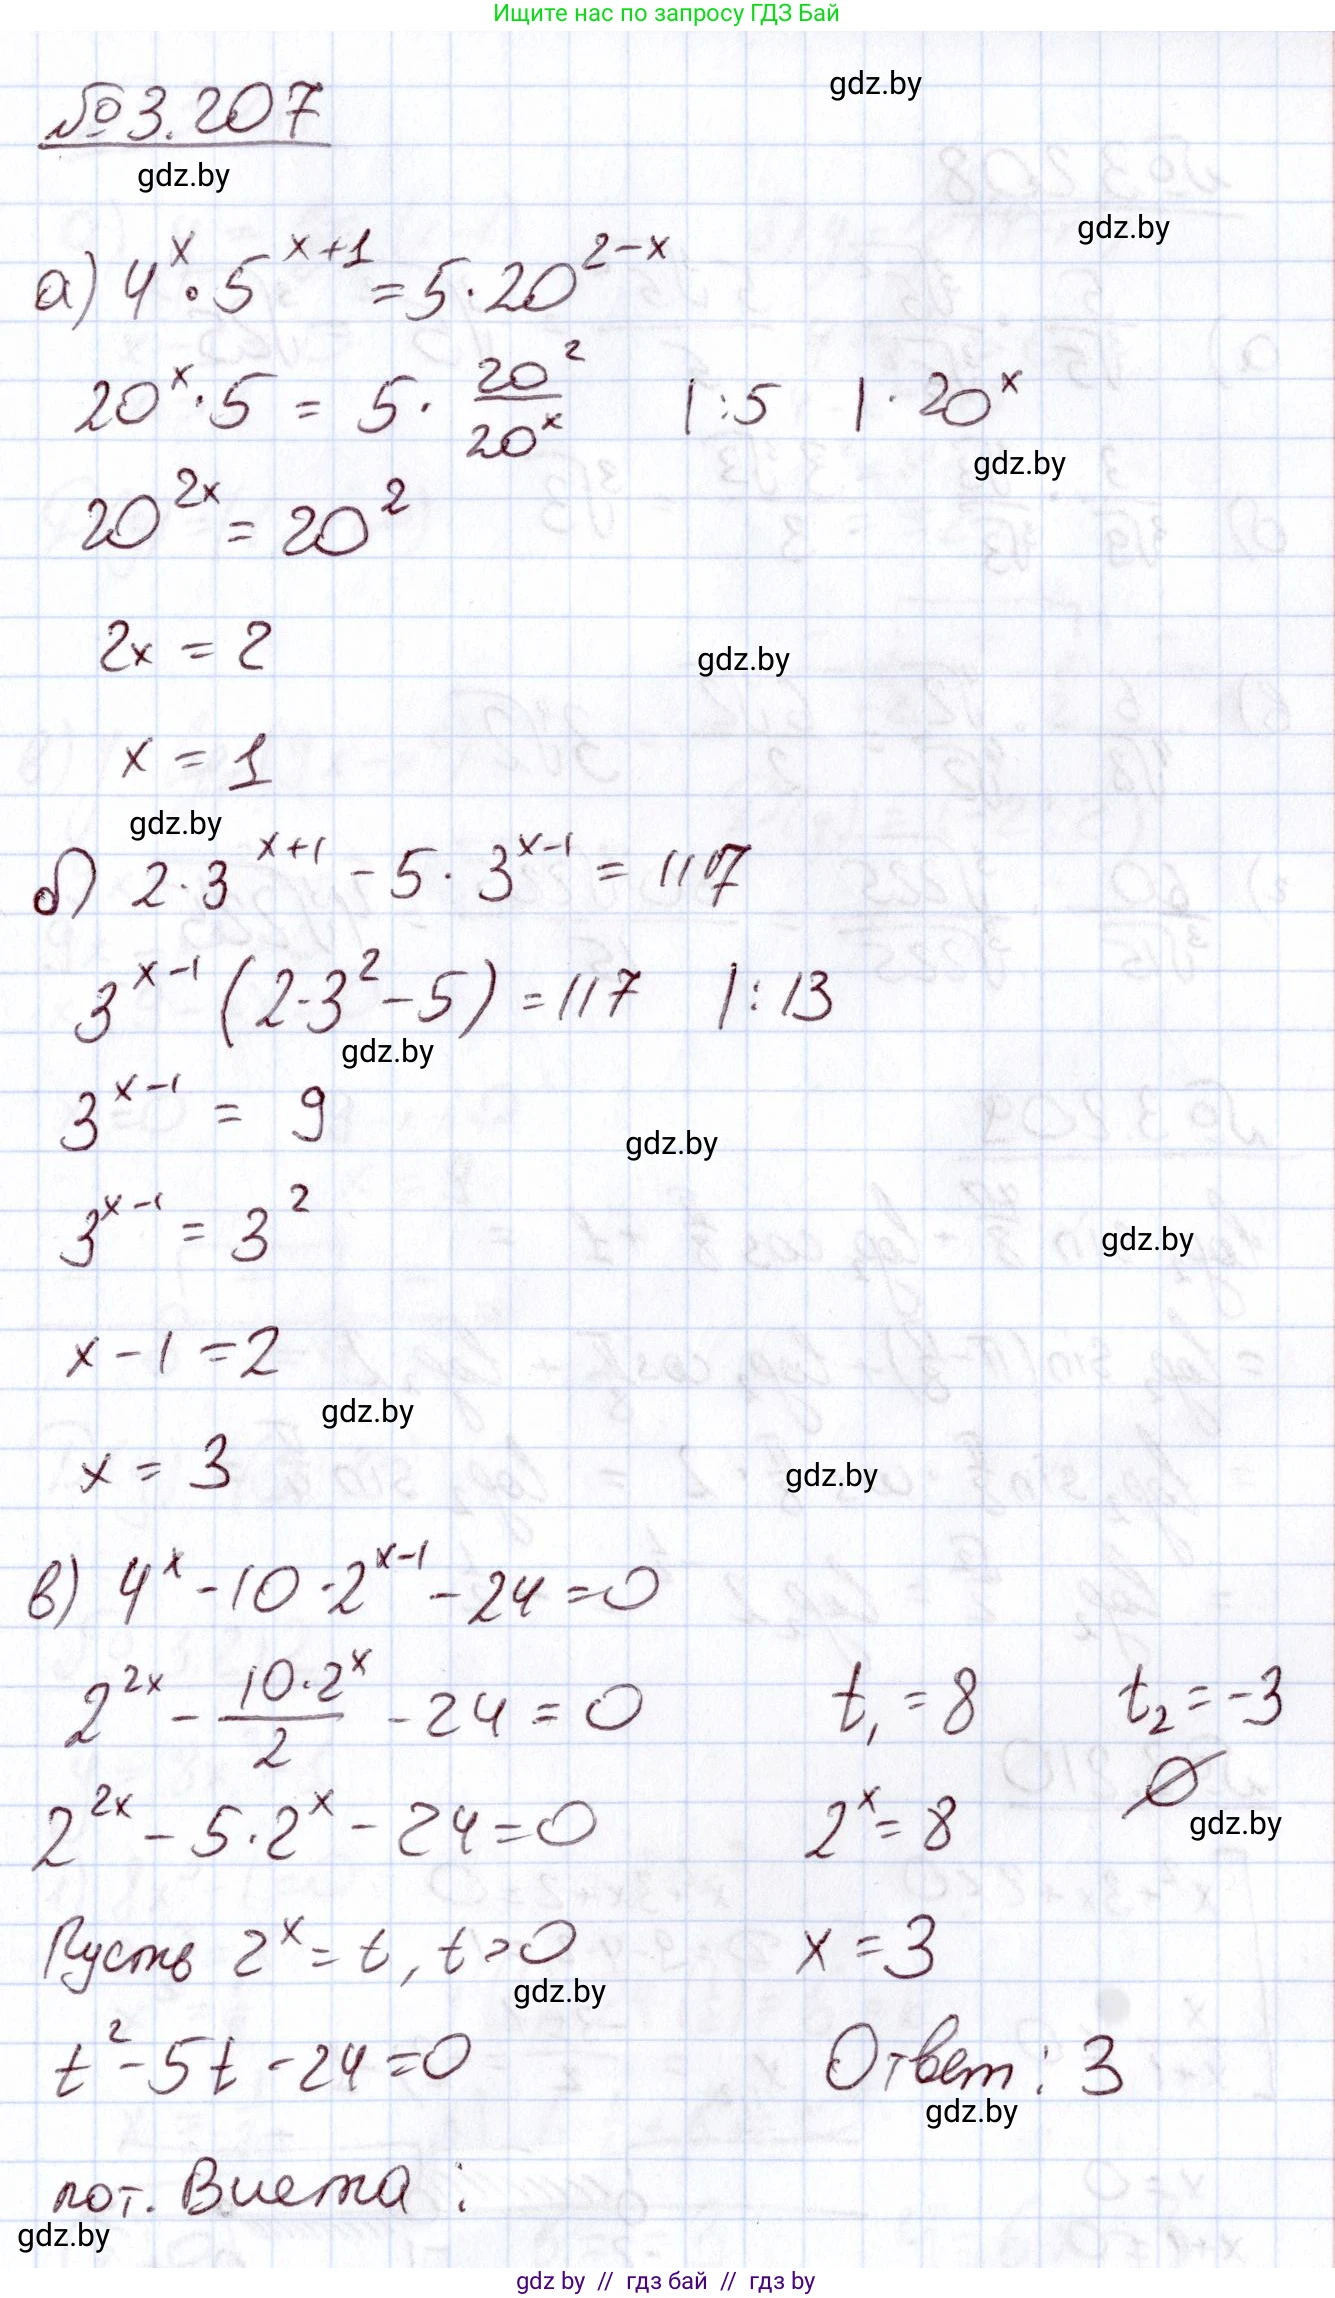 Ищите нас по запросу ГДЗ Бай
gdz.by
№3.207
gdz.by
gdz.by
а) 4^x · 5^(x+1) = 5 · 20^(2-x)
20^x · 5 = 5 · 20^2/20^x |:5 |· 20^x
gdz.by
20^(2x) = 20^2
2x = 2
gdz.by
x = 1
gdz.by
б) 2·3^(x+1) - 5·3^(x-1) = 117
3^(x-1) (2·3^2 - 5) = 117 |:13
gdz.by
3^(x-1) = 9
gdz.by
3^(x-1) = 3^2
gdz.by
x - 1 = 2
gdz.by
x = 3
gdz.by
в) 4^x - 10·2^(x-1) - 24 = 0
2^(2x) - 10·2^x/2 - 24 = 0
2^(2x) - 5·2^x - 24 = 0
Пусть 2^x = t, t>0
gdz.by
t^2 - 5t - 24 = 0
по т. Виета :
gdz.by
t₁ = 8 t₂ = -3
∅
gdz.by
2^x = 8
x = 3
Ответ: 3
gdz.by
gdz by // гдз бай // гдз by